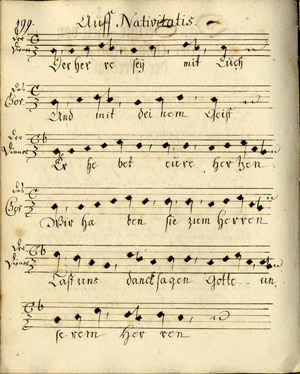 199. Auff Nativitatis.
Der her re sey mit Euch
das Chor.
Und mit dei nem Geist
Er he bet eure hertzen
das Chor
Wir ha ben sie zum herren
Der
Last uns dancksagen Gotte un
se rem Her ren